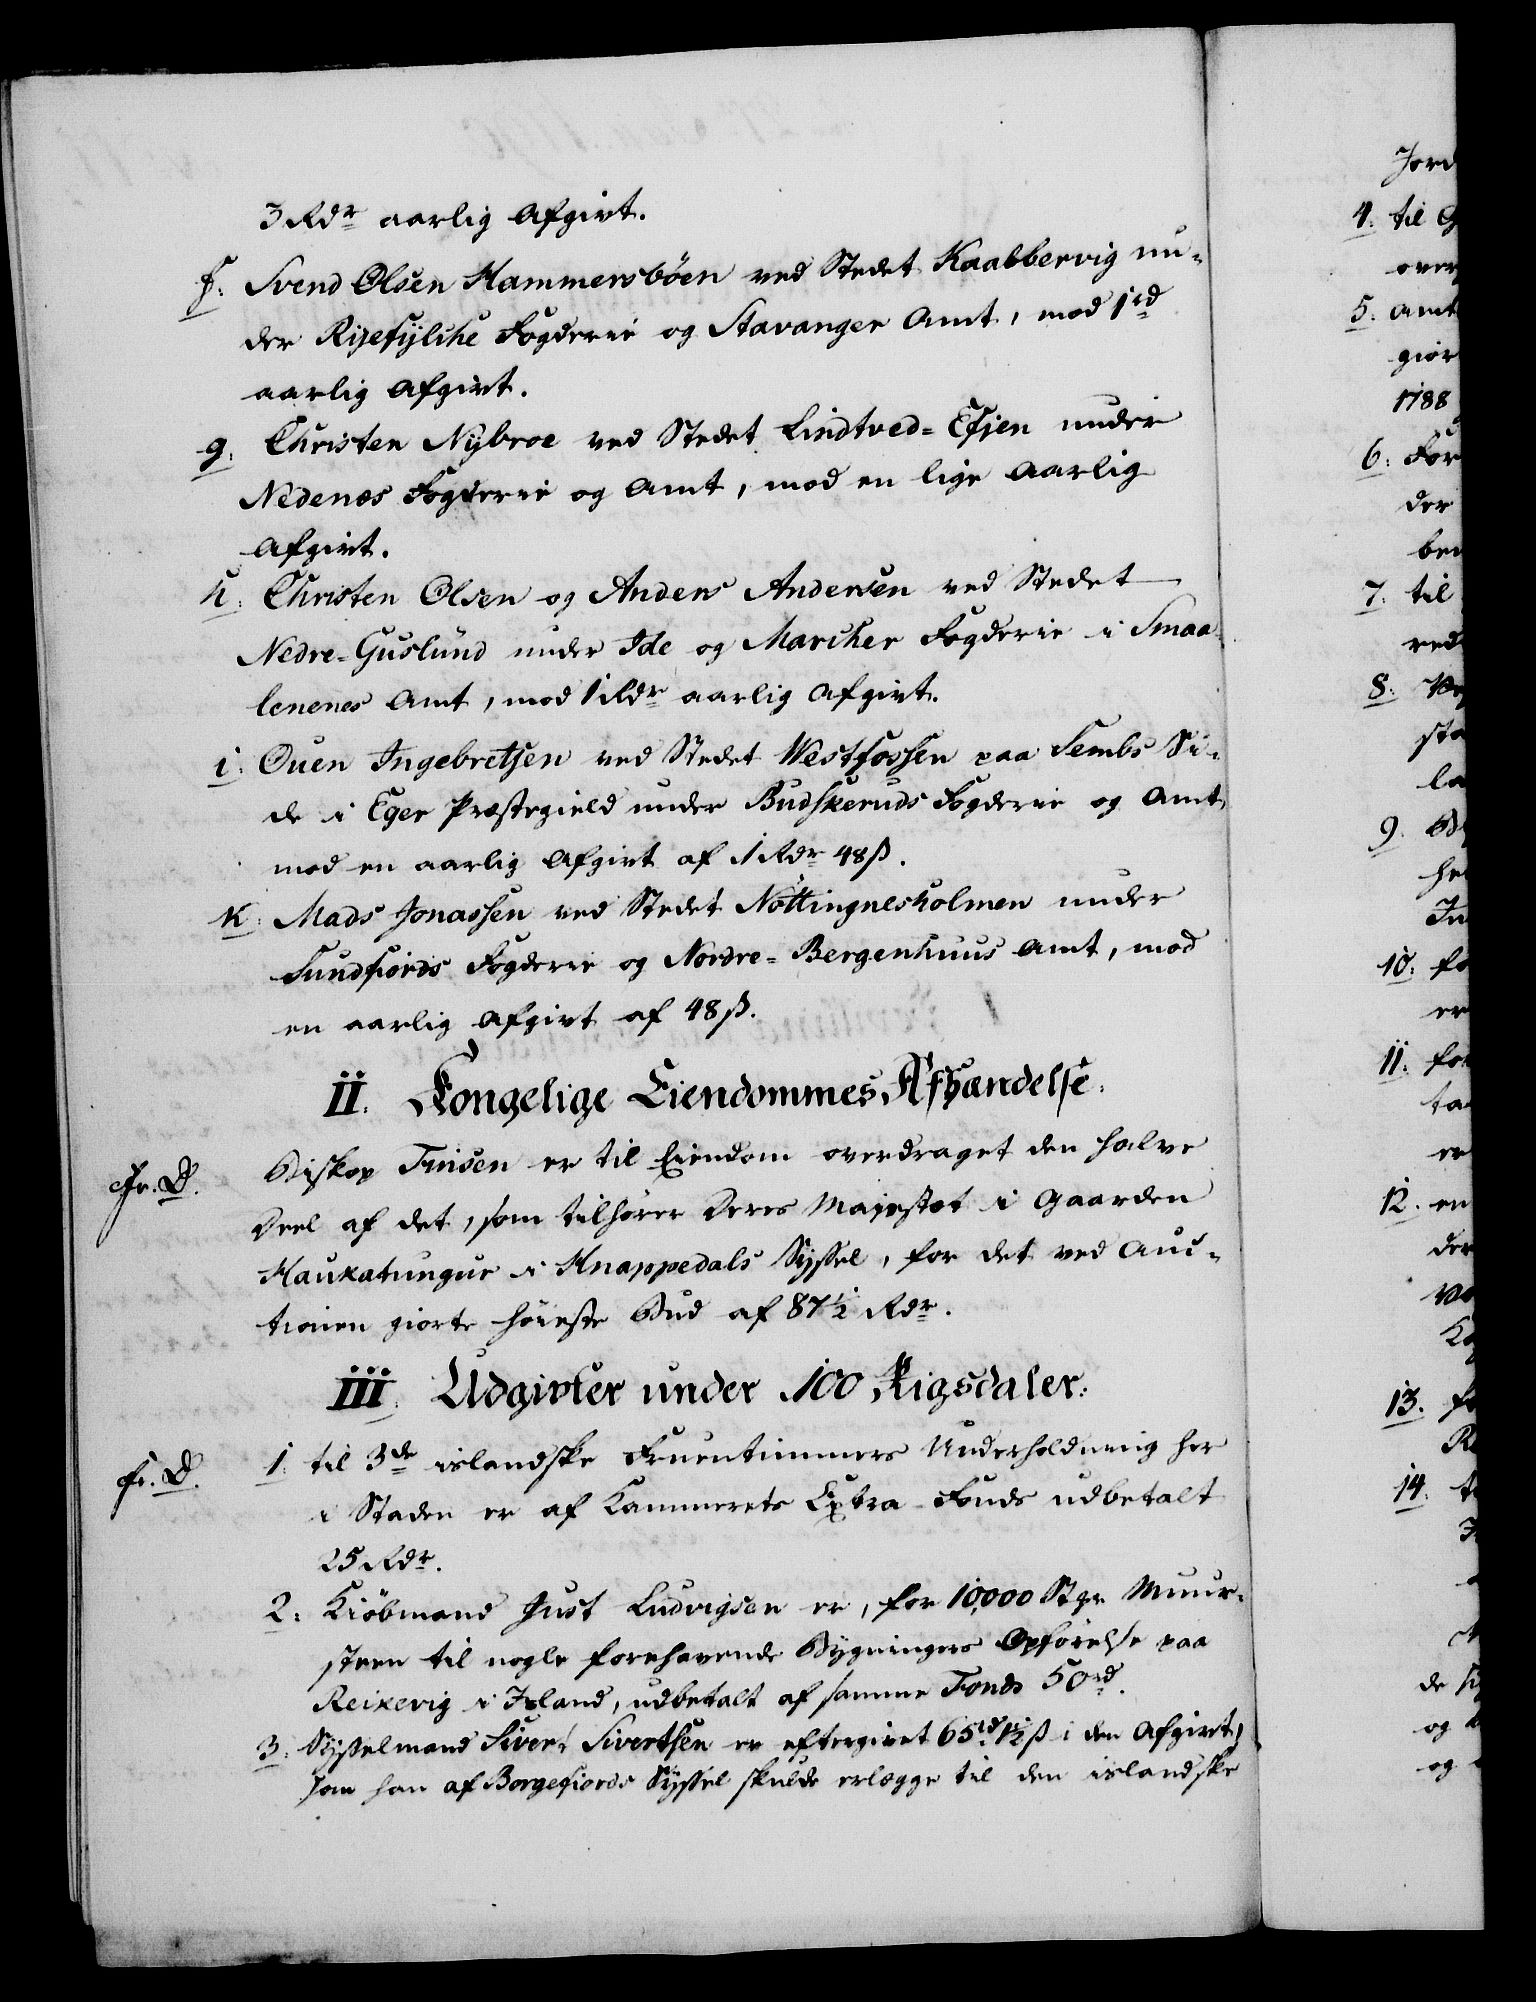 3 Rdr aarlig Afgivt.
f. Svend Olsen Hammersböen ved Stedet Kaabbervig un-
der Rijefylche Fogderie og Stavanger Amt, mod 1rd
aarlig Afgivt.
g. Christen Nybroe ved Stedet Lindtved-Efjen under
Nedenes Fogderie og Amt, mod en lige aarlig
Afgivt.
h. Christen Olsen og Anders Andersen ved Stedet
Nedre-Guslund under Ide og Marcher Fogderie i Smaa-
lenenes Amt, mod 1 Rdr aarlig Afgivt.
i. Ouen Ingebretsen ved Stedet Westfossen paa Sembs Si-
de i Eger Præstegield under Budskeruds Fogderie og Amt
mod en aarlig Afgivt af 1 Rdr 48 ß.
k. Mads Jonassen ved Stedet Nöttingnesholmen under
Sundfiords Fogderie og Nordre-Bergenhuus Amt, mod
en aarlig Afgivt af 48 ß.
II. Kongelige Eiendommes Afhændelse.
Biskop Finsen er til Eiendom overdraget den halve
Deel af det, som tilhører Deres Majestæt i Gaarden
Haukatungur i Knappedals Syssel, for det ved Auc-
tionen giorte høieste Bud af 87½ Rdr.
III. Udgivter under 100 Rigsdaler.
1. til 3de islandske Fruentimmers Underholdning her
i Staden er af Kammerets Extra Fonds udbetalt
25 Rdr.
2. Kiöbmand Just Ludvigsen er, for 10,000 Stkr Muur-
steen til nogle forehavende Bygningers Opförelse paa
Reikevig i Island, udbetalt af samme Fonds 50rd.
3. Sysselmand Sivert Sivertsen er eftergivet 65rd 1½ ß i den Afgivt,
som han af Borgefiords Syssel skulde erlægge til den islandske
Jord
4. til
5. Amt
giør
1788
6. For
der
7. til
red
8.
sta
la
9.
10. fo
er
11. for
ta
er
12. en
der
13.
14.
de
og
og